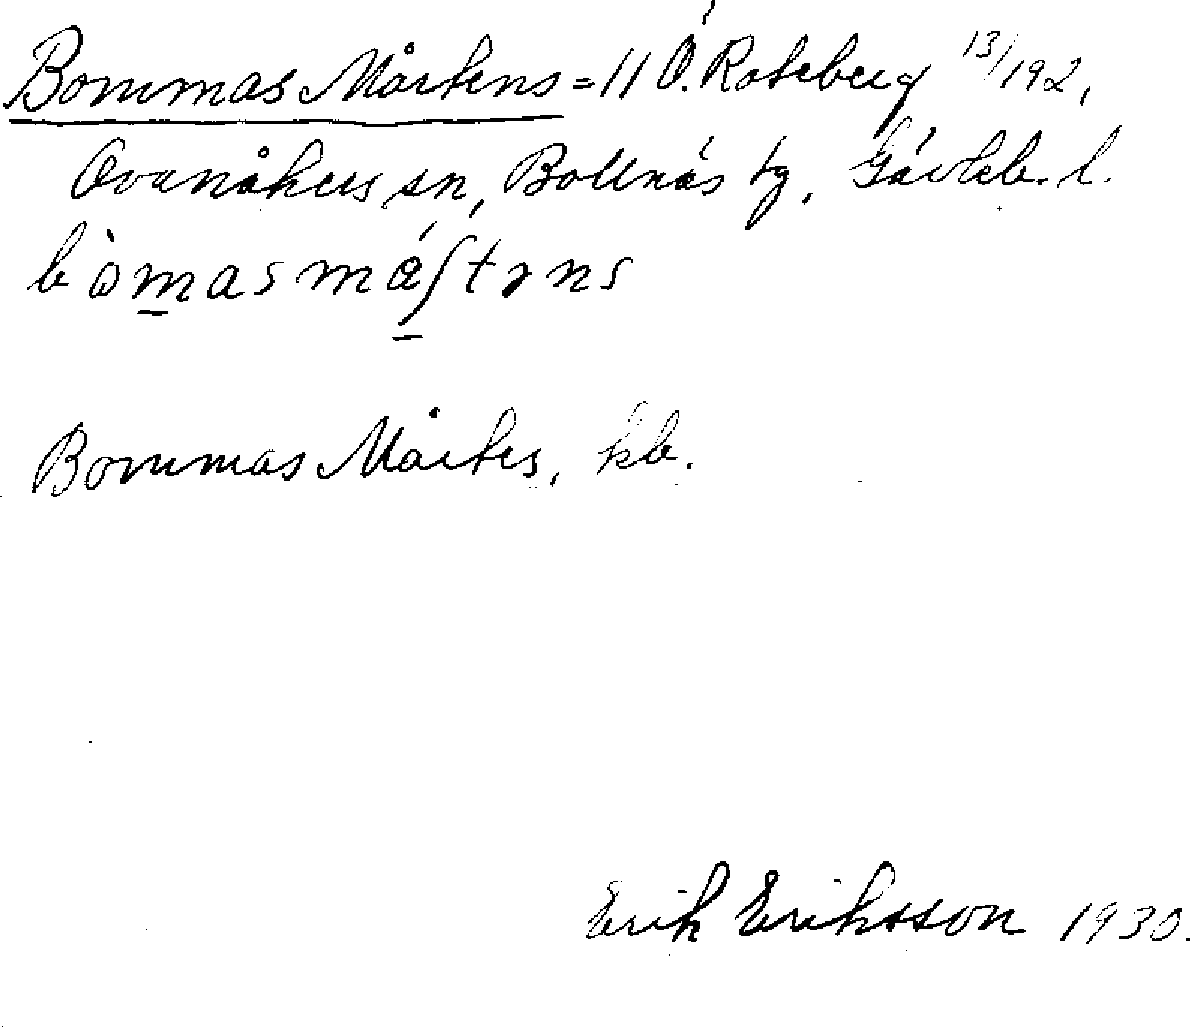 Bommas Mårtens = 11 Ö. Roteberg 13/192,
Ovanåkers sn, Bollnäs tg, Gävleb. l.
Bommas Mårtes, kb.
Erik Eriksson 1930.